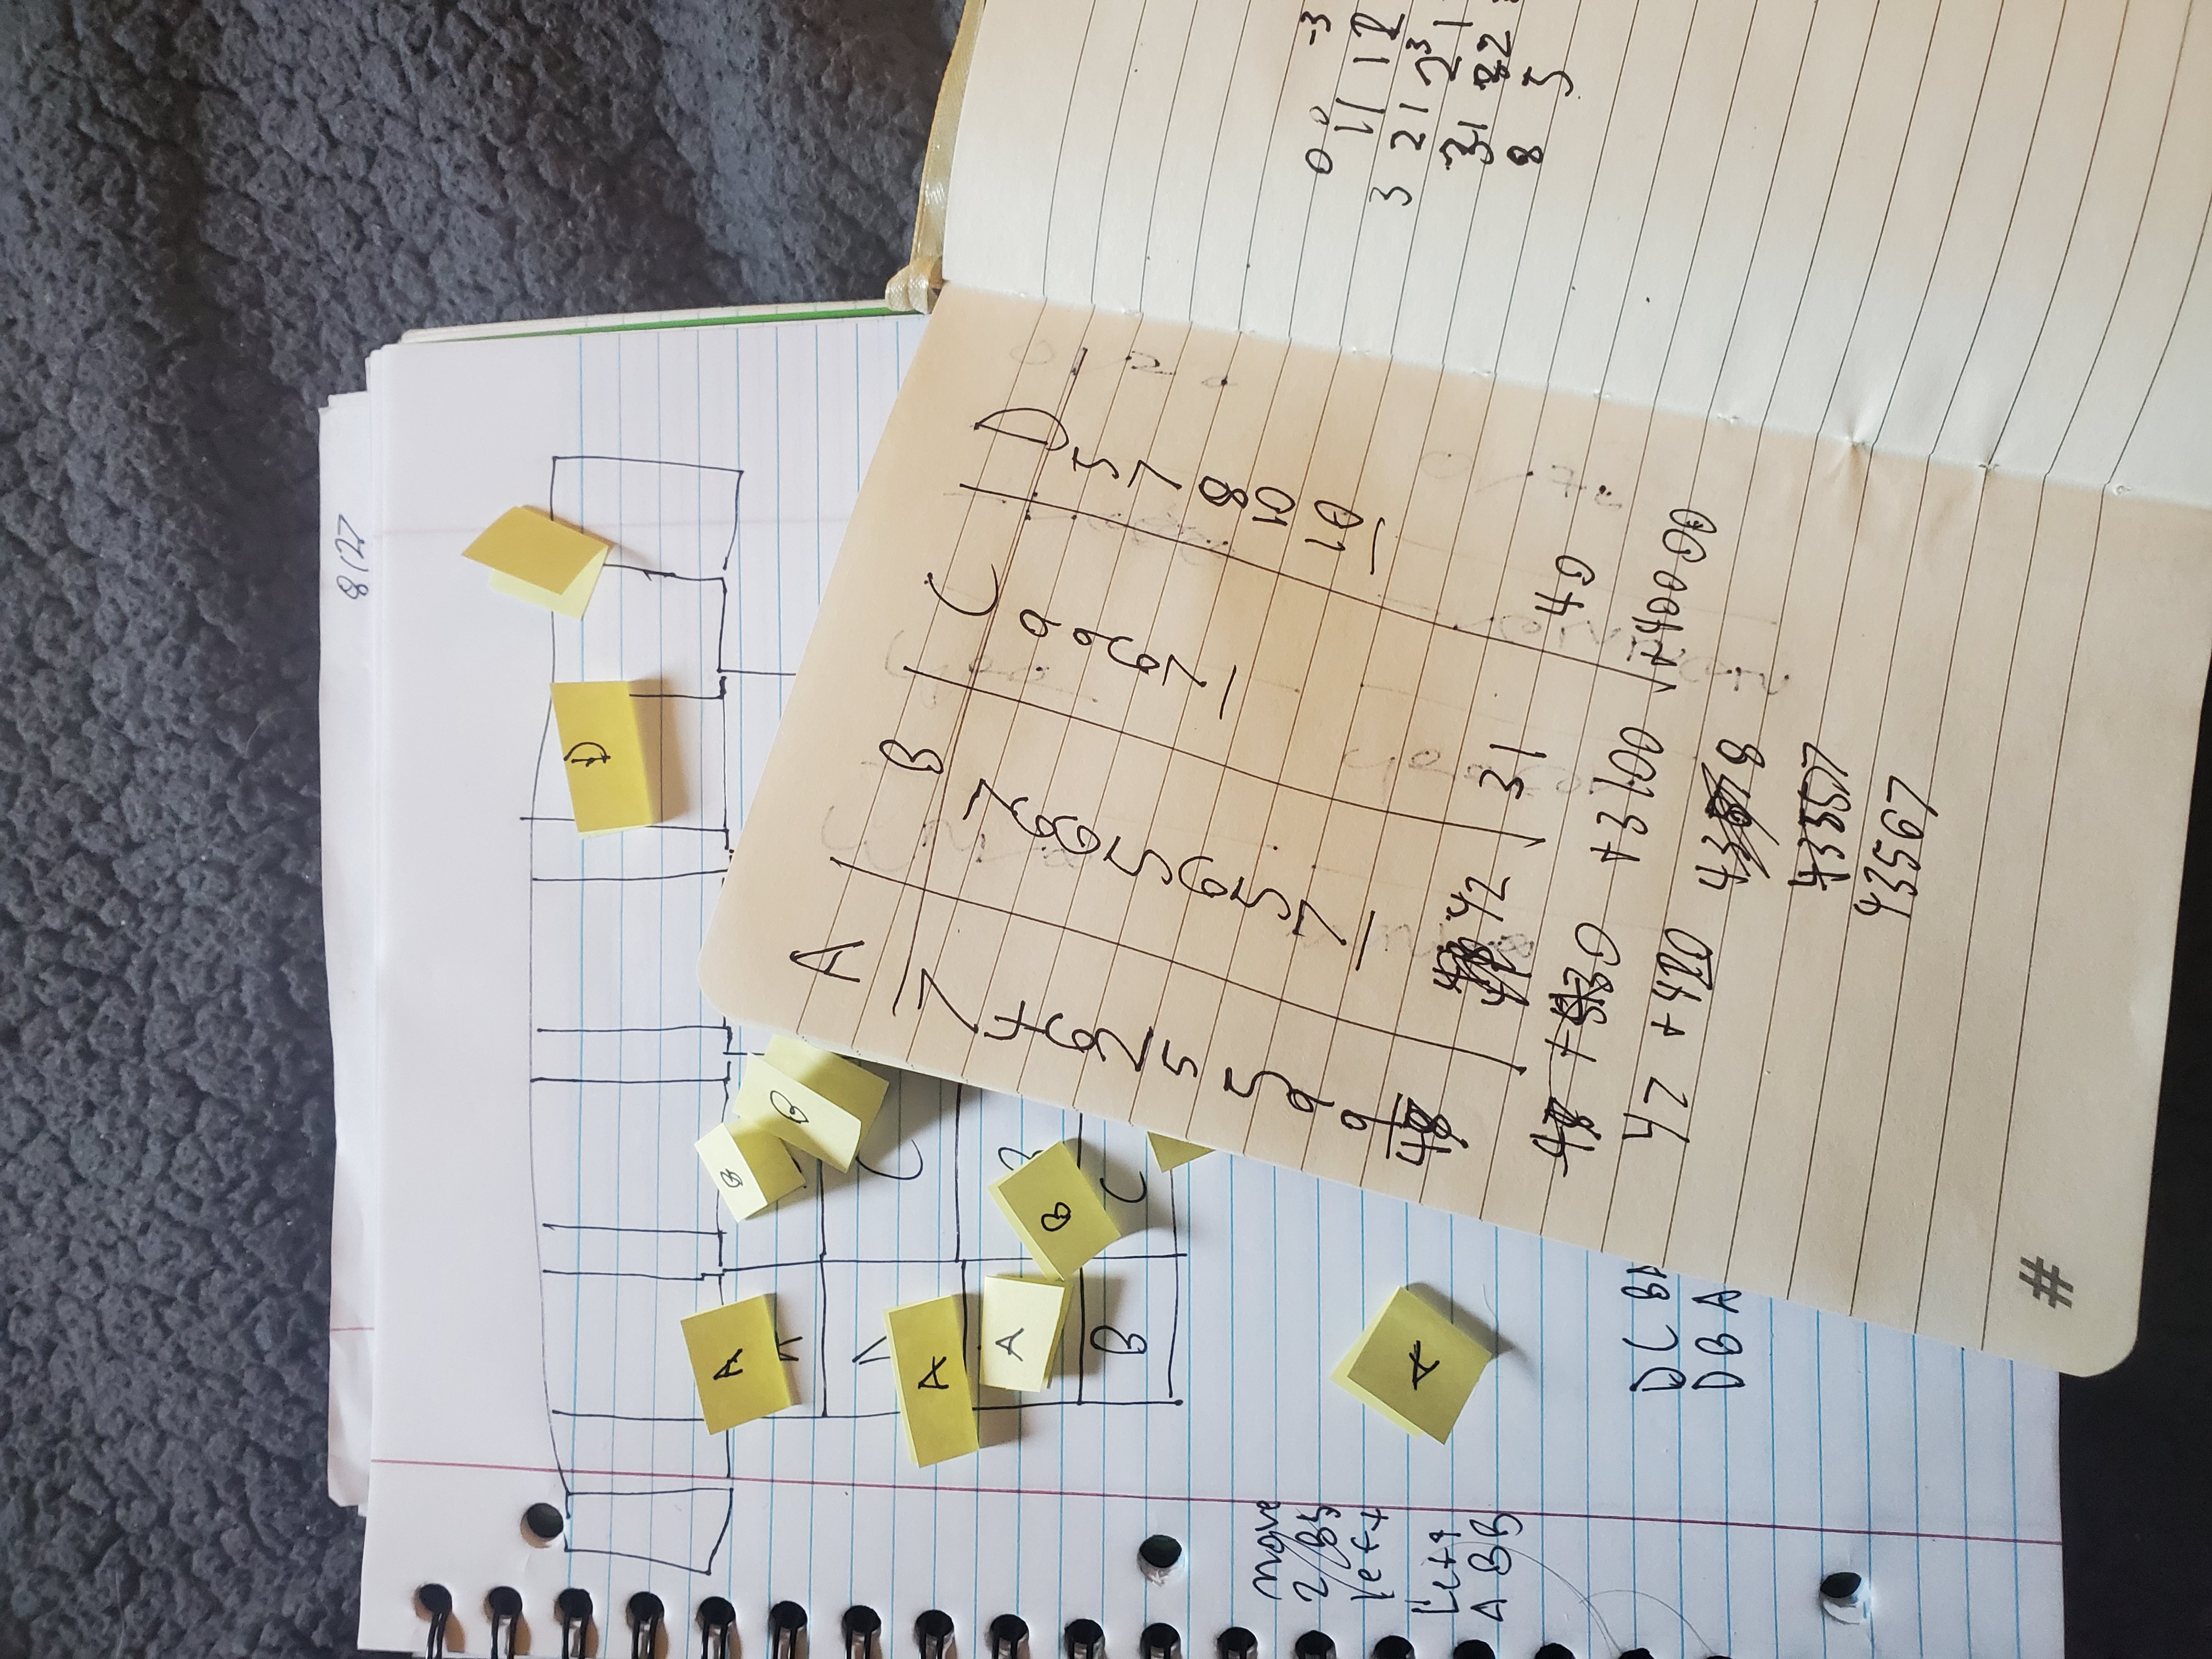 8/27
D
A
B
B
A
C
A
A
B
B
C
move
2 Bs
left
Left
A BB
A
D C BA
D B A
A B C D
7 7 9 5
4 6 9 7
6 6 6 8
2 5 7 10
5 6 10
5 5
9 7
9
42 31 40
+3100 +40000
47 +420
43567
#
0 0 -3
11 12
3 21 2 3 1
31 22
8 5